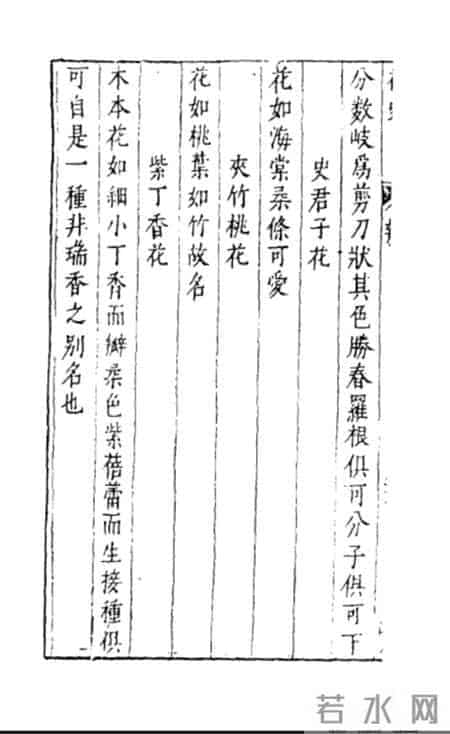 分數岐爲剪刀狀其色勝春羅根俱可分子俱可下
史君子花
花如海棠柔條可愛
夾竹桃花
花如桃葉如竹故名
紫丁香花
木本花如細小丁香而瓣柔色紫蓓蕾而生接種俱
可自是一種非瑞香之别名也
若水网